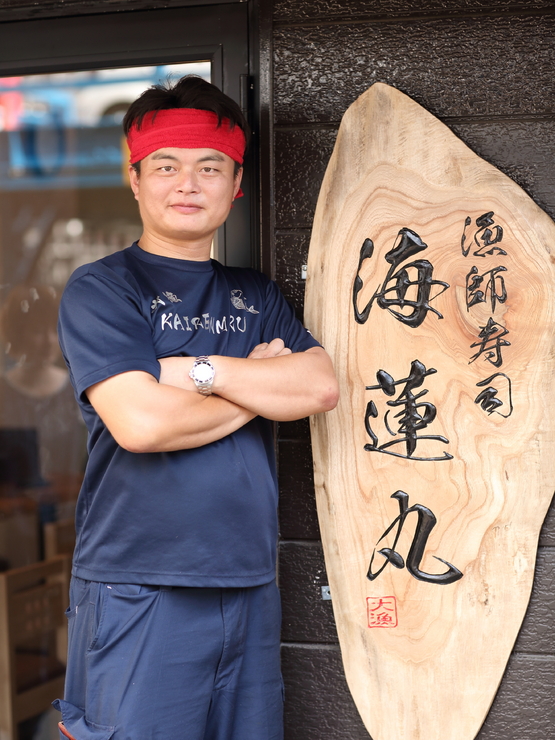 漁師寿司
海蓮丸
大漁
KAIRENMARU